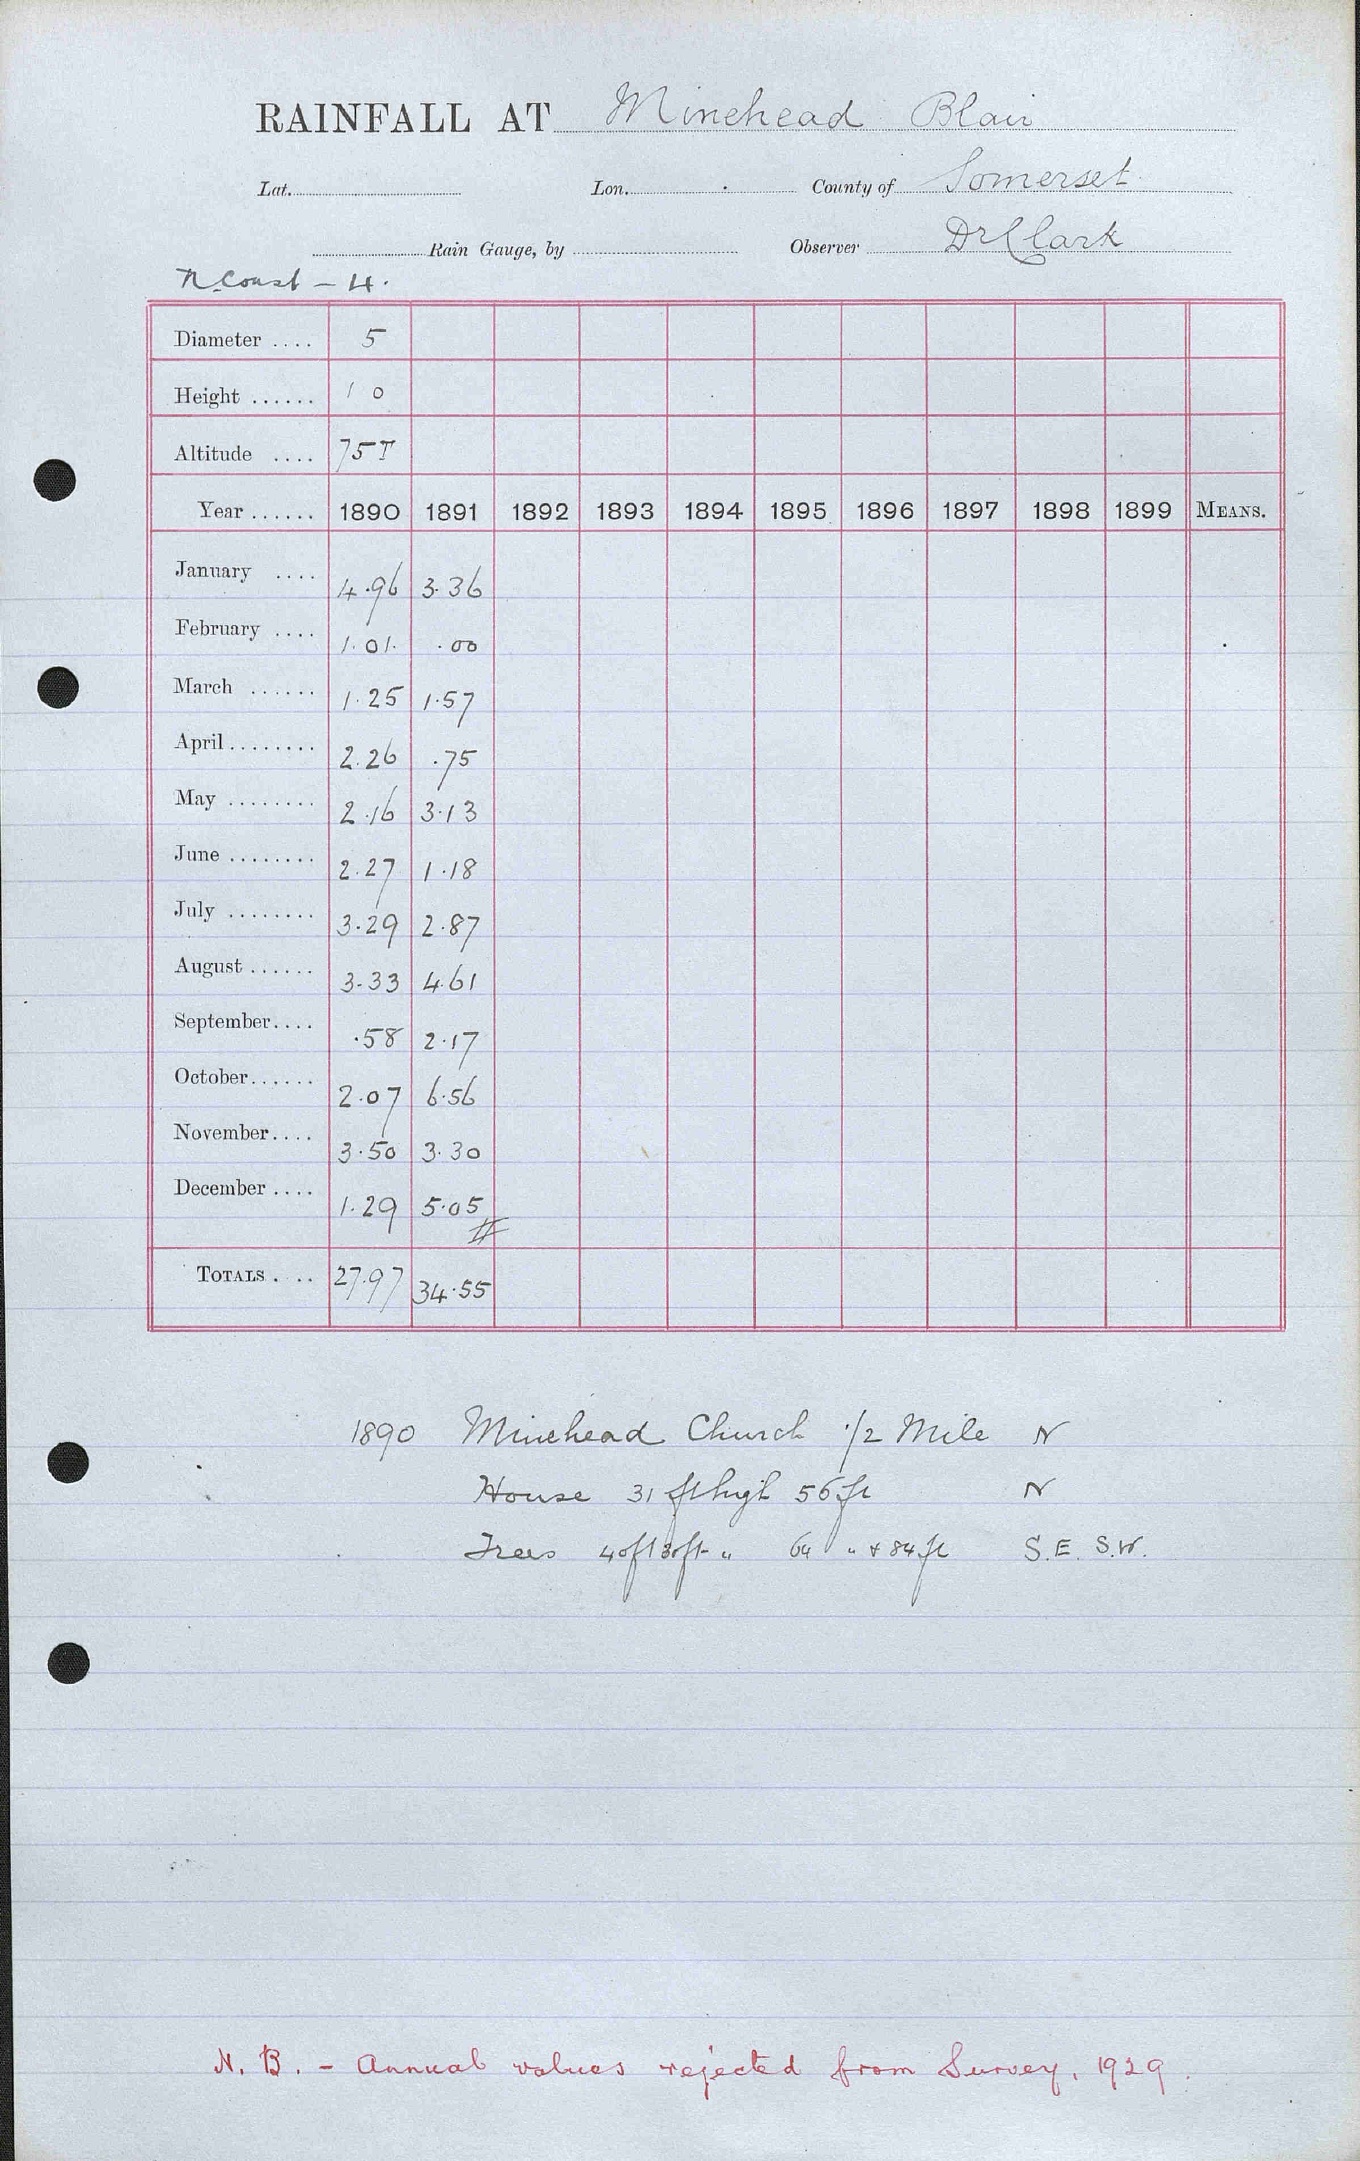 RAINFALL AT Minehead Blair
Lat. Lon. County of Somerset
Rain Gauge, by Observer Dr Clark
N Coast – 4.
Diameter .... 5
Height ...... 1 0
Altitude .... 75T
Year ...... 1890 1891 1892 1893 1894 1895 1896 1897 1898 1899 MEANS.
January .... 4.96 3.36
February .... 1.01 .00
March ...... 1.25 1.57
April ........ 2.26 .75
May ........ 2.16 3.13
June ........ 2.27 1.18
July ........ 3.29 2.87
August ...... 3.33 4.61
September.... .58 2.17
October...... 2.07 6.56
November.... 3.50 3.30
December .... 1.29 5.05
TOTALS .... 27.97 34.55
1890 Minehead Church 1/2 Mile N
House 31 ft high 56 ft N
Trees 40ft 30ft " 64 " & 84 ft S.E. S.W.
N.B. – Annual values rejected from Survey, 1929.